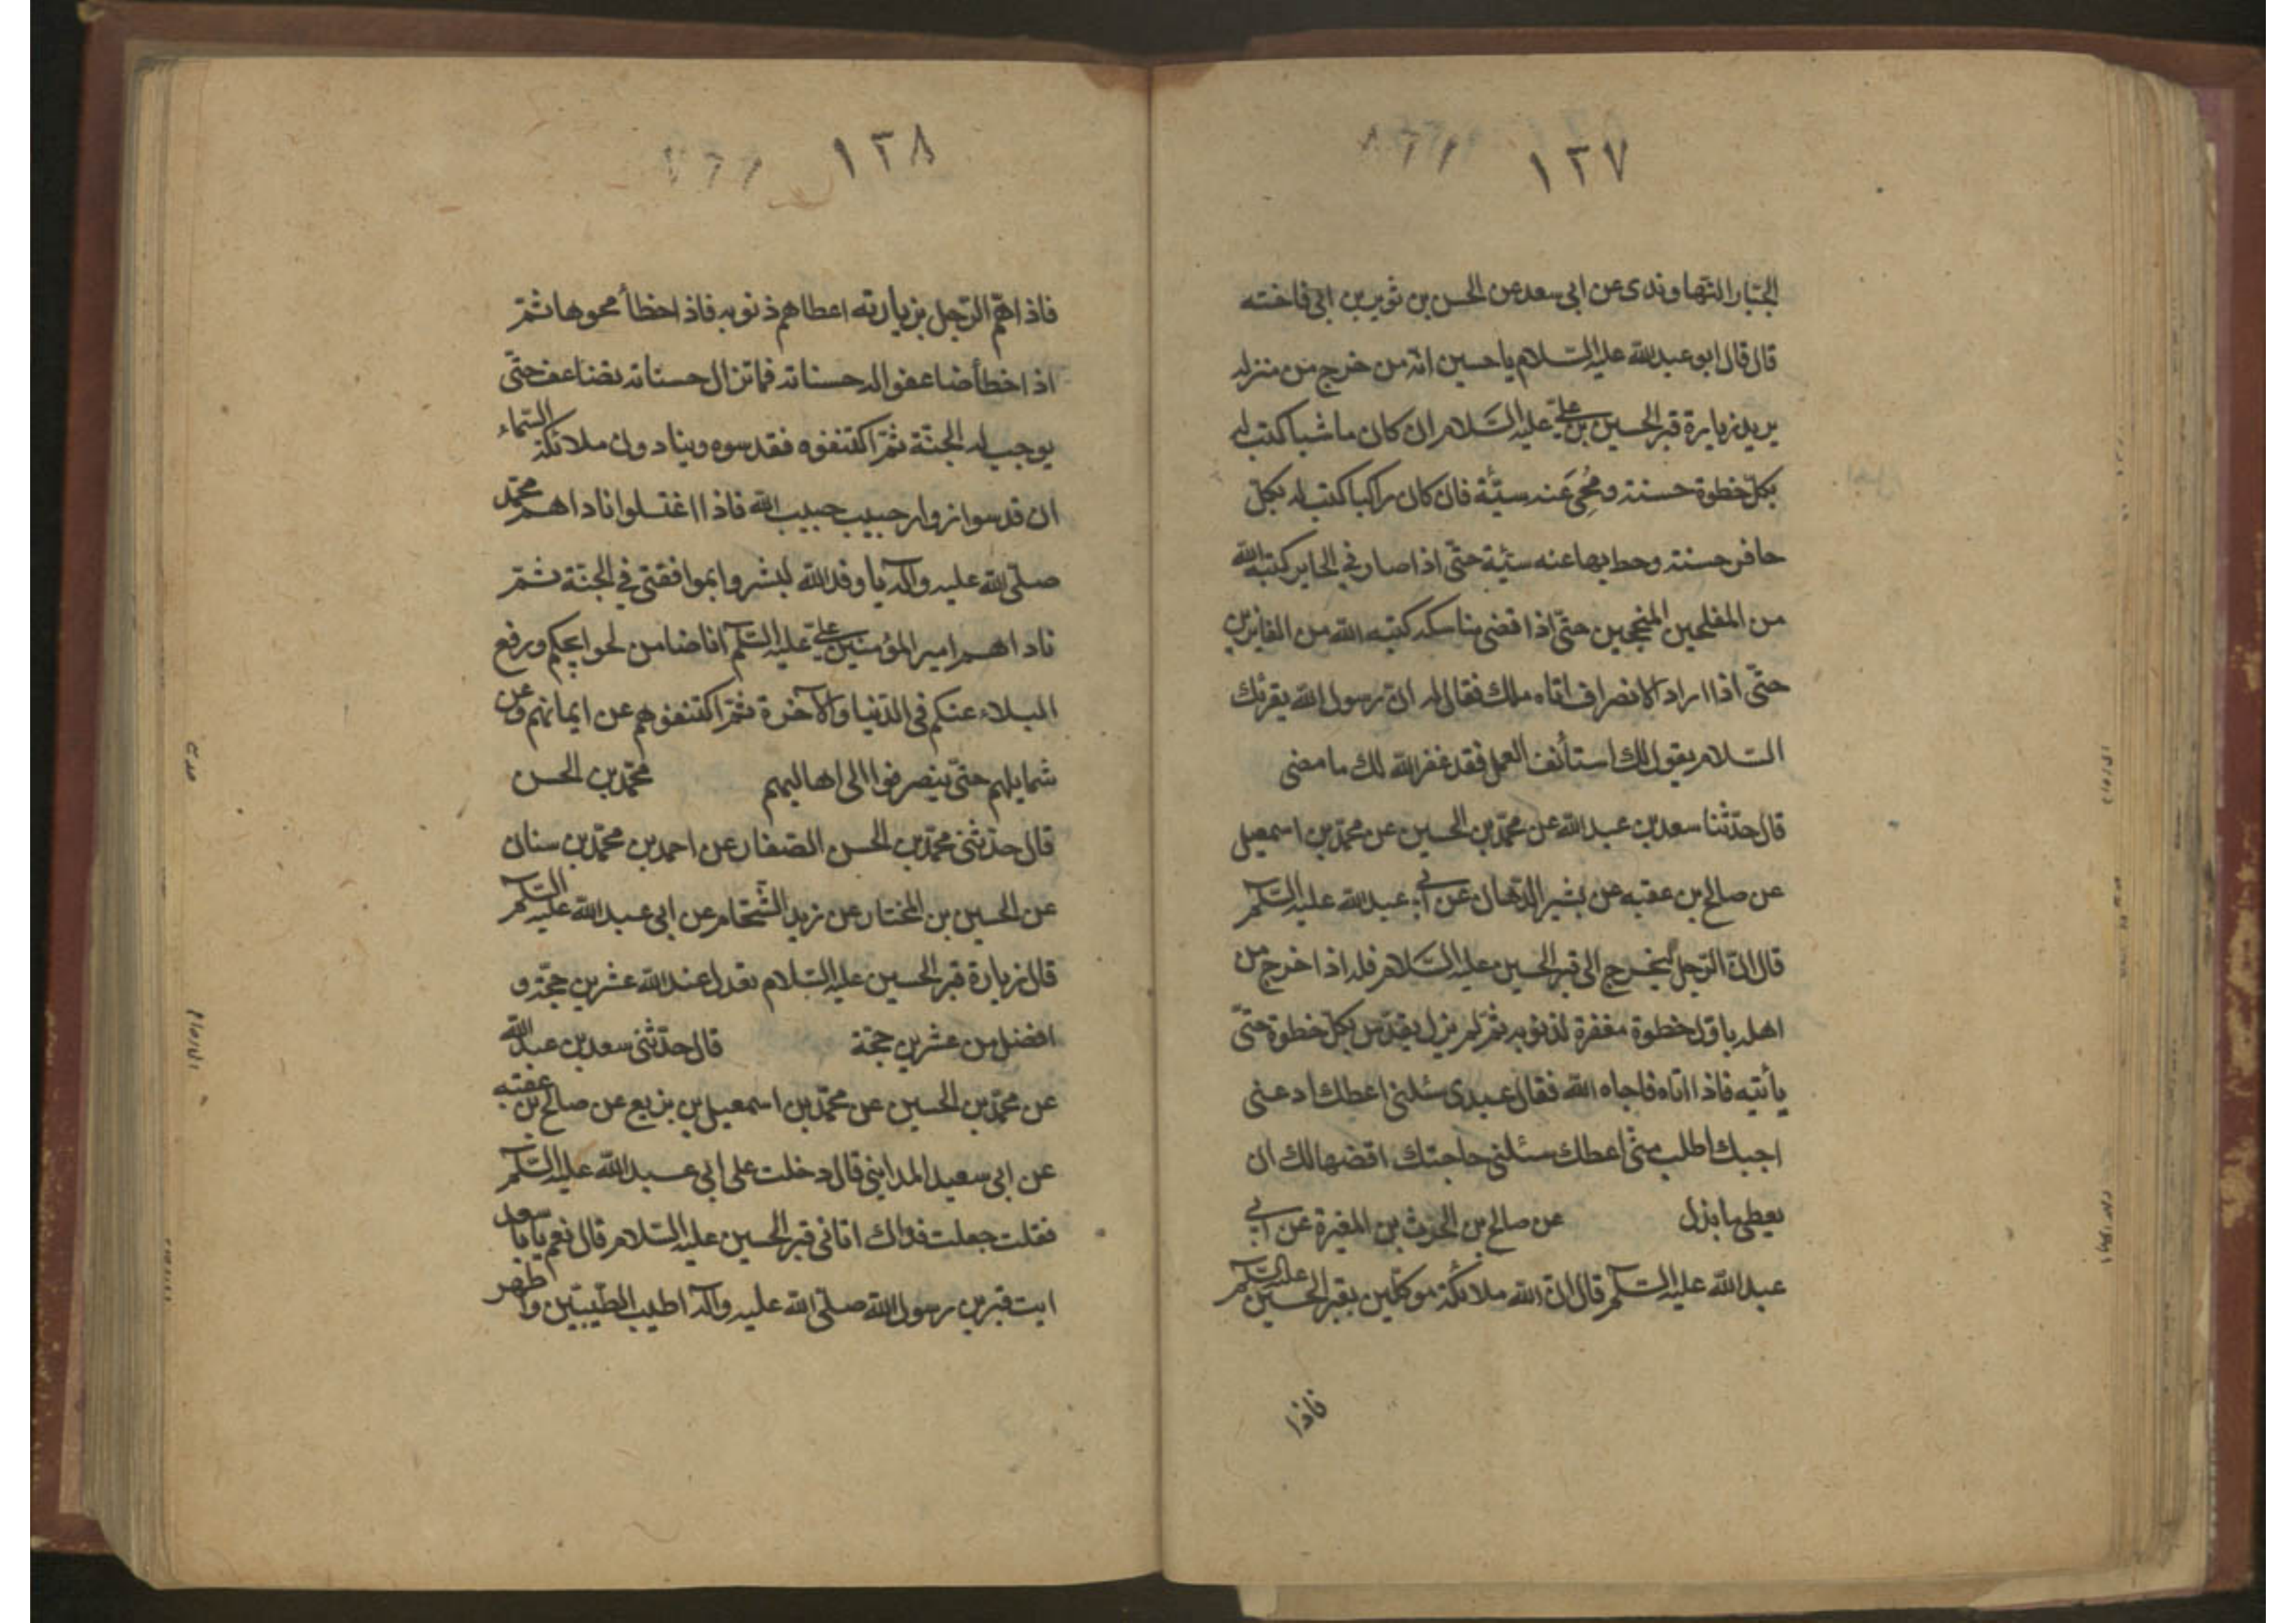 ١٣٧
الجبّار النّهاوندى عن ابى سعد عن الحسن بن ثوير بن ابى فاخته
قال قال ابو عبد الله عليه السّلام يا حسين انّه من خرج من منزله
يريد زيارة قبر الحسين بن علىّ عليه السّلام ان كان ماشيا كتب له
بكلّ خطوة حسنة ومُحِىَ عَنه سيّئة فان كان راكبا كتب له بكلّ
حافر حسنة وحط بها عنه سيّئة حتّى اذا صار في الحاير كتبه الله
من المفلحين المنجحين حتّى اذا قضى مناسكه كتبه الله من الفائزين
حتّى اذا اراد الانصراف اتاه ملك فقال له انّ رسول الله يقرئك
السّلام يقول لك استأنف العمل فقد غفر الله لك ما مضى
قال حدّثنا سعد بن عبد الله عن محمّد بن الحسين عن محمّد بن اسمعيل
عن صالح بن عقبه عن بشير الدّهان عن ابي عبد الله عليه السّلم
قال انّ الرّجل ليخرج الى قبر الحسين عليه السّلام فله اذا خرج من
اهله باوّل خطوة مغفرة لذنوبه ثمّ لم يزل يقدّس بكلّ خطوة حتّى
يأتيه فاذا اتاه فاجاه الله فقال عبدى سئلنى اعطك ادعنى
اجبك اطلب منّى اعطك سئلنى حاجتك اقضها لك ان
يعطى ما بذل عن صالح بن الحرث بن المغيرة عن ابي
عبد الله عليه السّلم قال انّ الله ملائكة موكّلين بقبر الحسين عليه السّلم
فاذا
١٣٨
فاذا همّ الرّجل بزيارته اعطاهم ذنوبه فاذ اخطأ محوها ثمّ
اذا خطأ ضاعفوا له حسناته فما تزال حسناته تضاعف حتّى
يوجب له الجنّة ثمّ اكتنفوه فقدسوه وينادون ملائكة السّماء
ان قدسوا زوار حبيب حبيب الله فاذا اغتسلوا ناداهم محمّد
صلّى الله عليه وآله يا وفد الله ابشروا بموافقتى في الجنّة ثمّ
ناداهم امير المؤمنين علىّ عليه السّلم انا ضامن لحوايجكم ورفع
البلاء عنكم فى الدّنيا والآخرة ثمّ اكتنفوهم عن ايمانهم وعن
شمايلهم حتّى ينصرفوا الى اهاليهم محمّد بن الحسن
قال حدّثنى محمّد بن الحسن الصّفار عن احمد بن محمّد بن سنان
عن الحسين بن المختار عن زيد الشّحّام عن ابى عبد الله عليه السّلم
قال زيارة قبر الحسين عليه السّلام تعدل عند الله عشرين حجّة و
افضل من عشرين حجّة قال حدّثنى سعد بن عبد الله
عن محمّد بن الحسين عن محمّد بن اسمعيل بن بزيع عن صالح بن عقبه
عن ابى سعيد المداينى قال دخلت على ابى عبد الله عليه السّلم
فقلت جعلت فداك اتانى قبر الحسين عليه السّلام قال نعم يا با سعد
ايت قبر بن رسول الله صلّى الله عليه وآله اطيب الطّيبين واطهر